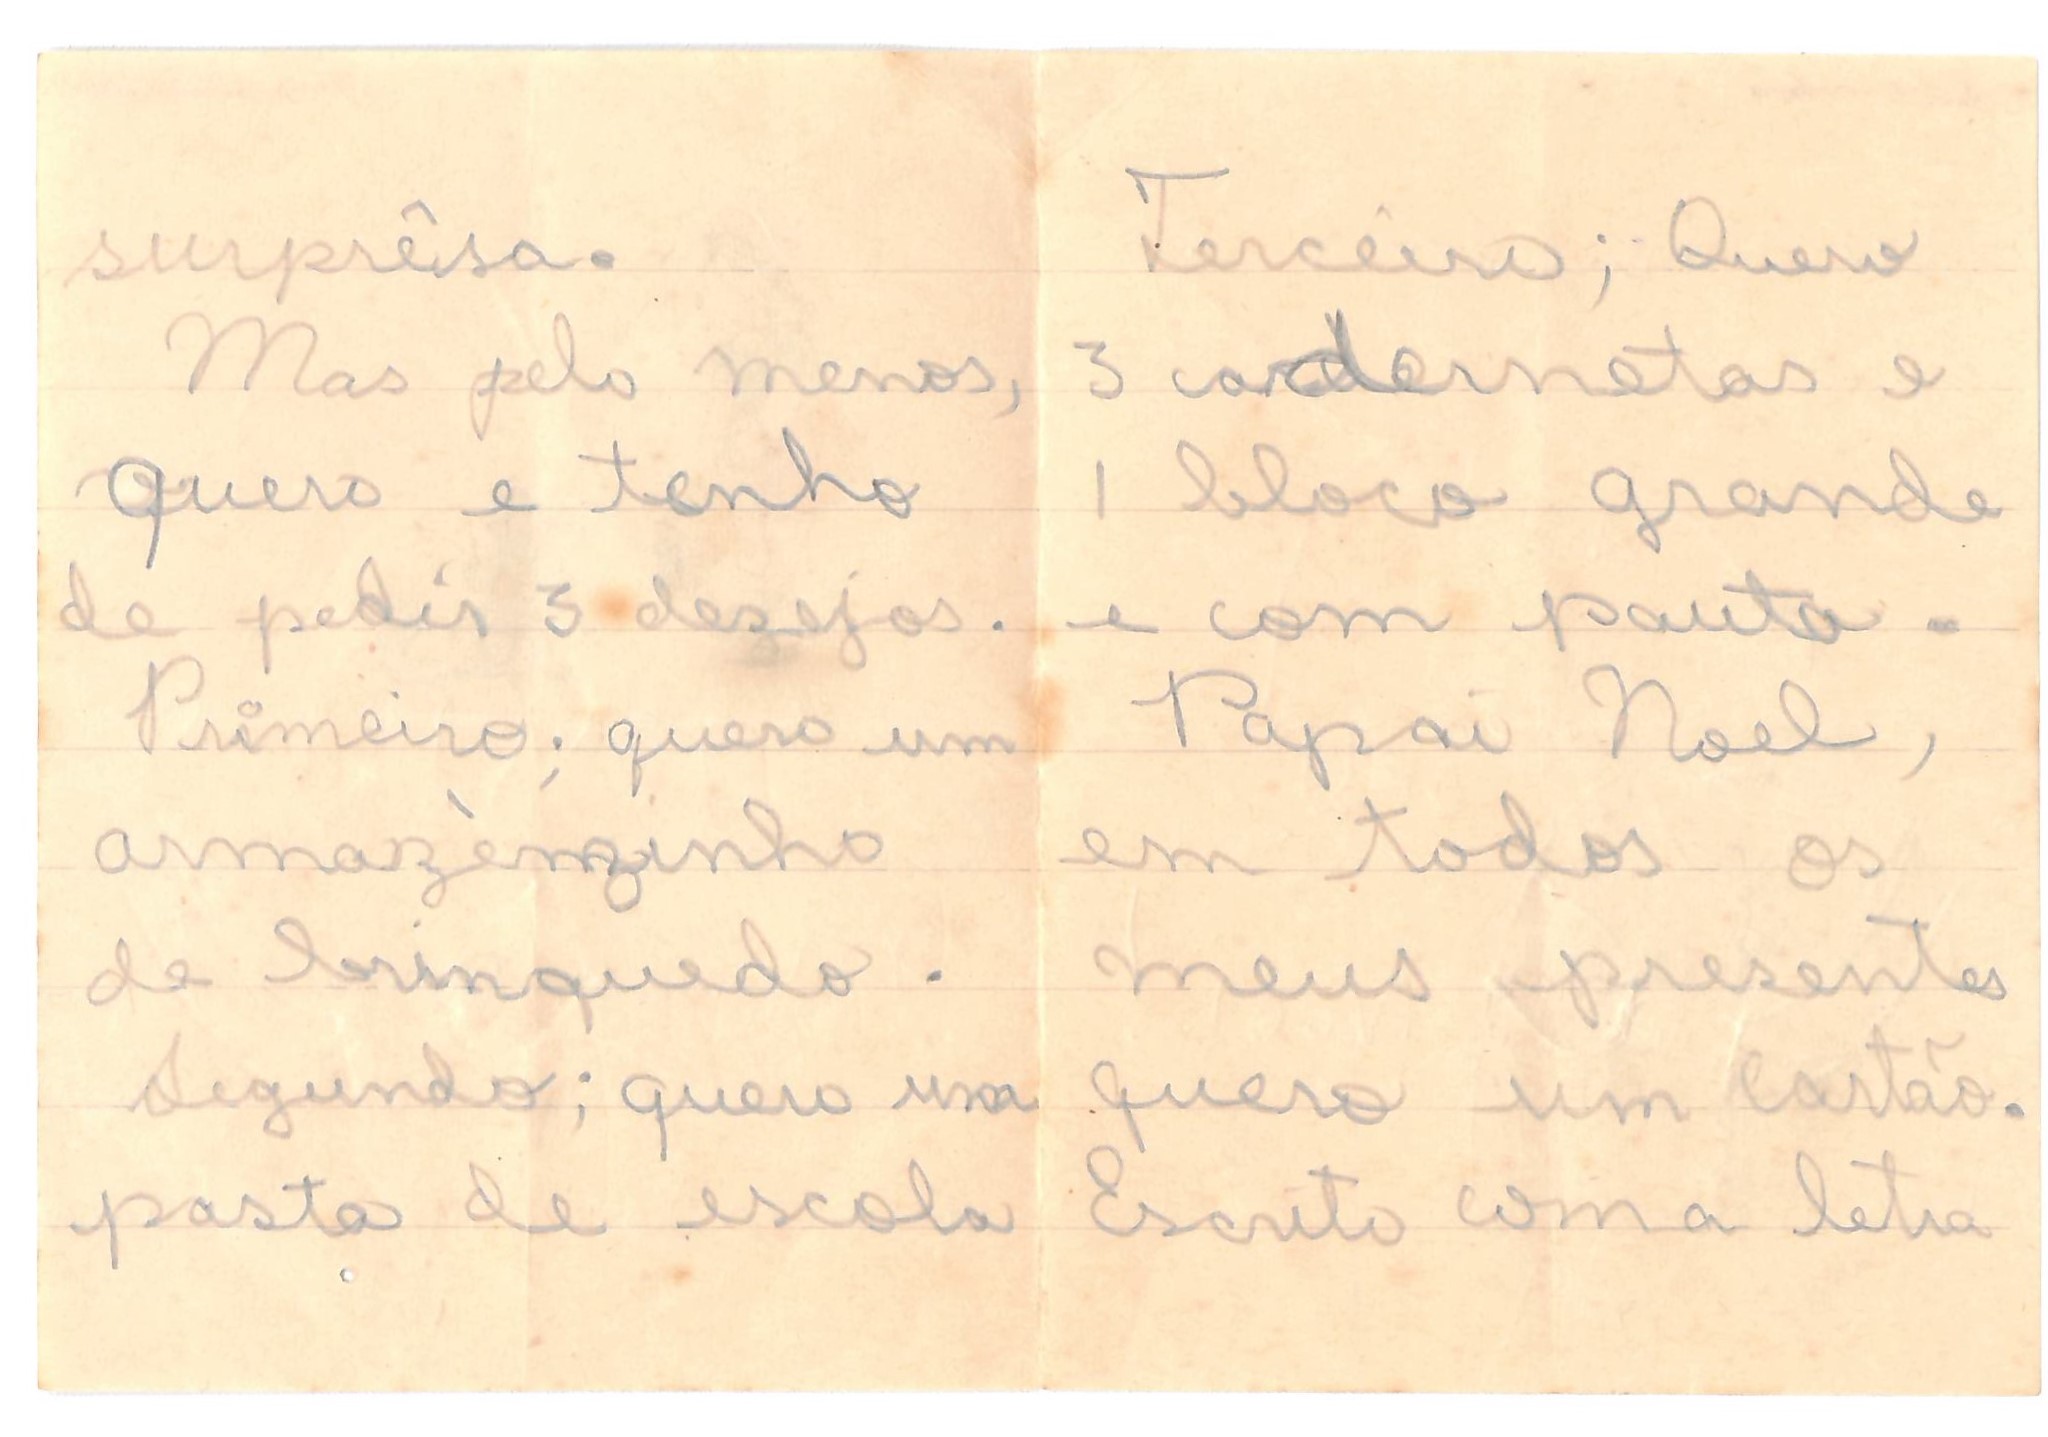 surprêsa.
Mas pelo menos,
quero e tenho
de pedir 3 dezejos.
Primeiro; quero um
armazènzinho
de brinquedo.
Segundo; quero uma
pasta de escola
Terceiro; Quero
3 cardernetas e
1 bloco grande
e com pauta.
Papai Noel,
em todos os
meus presentes
quero um cartão.
Escrito com a letra